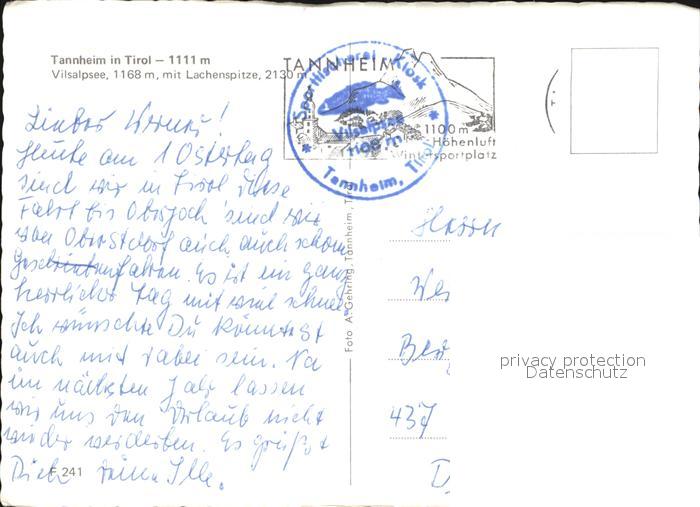 Tannheim in Tirol – 1111 m
Vilsalpsee, 1168 m, mit Lachenspitze, 2130 m
TANNHEIM
1100 m
Höhenluft
Wintersportplatz
Sportfischerei - Kiosk
Vilsalpsee
1168 m
Tannheim, Tirol
Lieber Werner!
Heute am 1 Ostertag
sind wir in Tirol diese
Fahrt bis Oberjoch sind wir
von Oberstdorf auch auch schon
gefahren. Es ist ein ganz
herrlicher Tag mit viel
Ich wünschte Du könntest
auch mit dabei sein. Na
im nächsten Jahr lassen
wir uns den Urlaub nicht
wieder verderben. Es grüßt
Dich Deine Ille.
F 241
Foto A. Gehring, Tannheim,
Herrn
We
437
D
privacy protection
Datenschutz